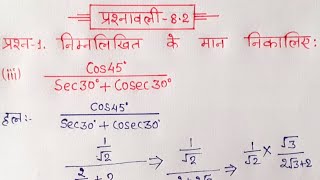 प्रश्नावली-8.2
प्रश्न-1. निम्नलिखित के मान निकालिए:
(iii) Cos45°
Sec30°+ Cosec30°
हल:- Cos45°
Sec30°+ Cosec30°
1/√2 ⇒ 1/√2 ⇒ 1/√2 × √3/2√3+2
2